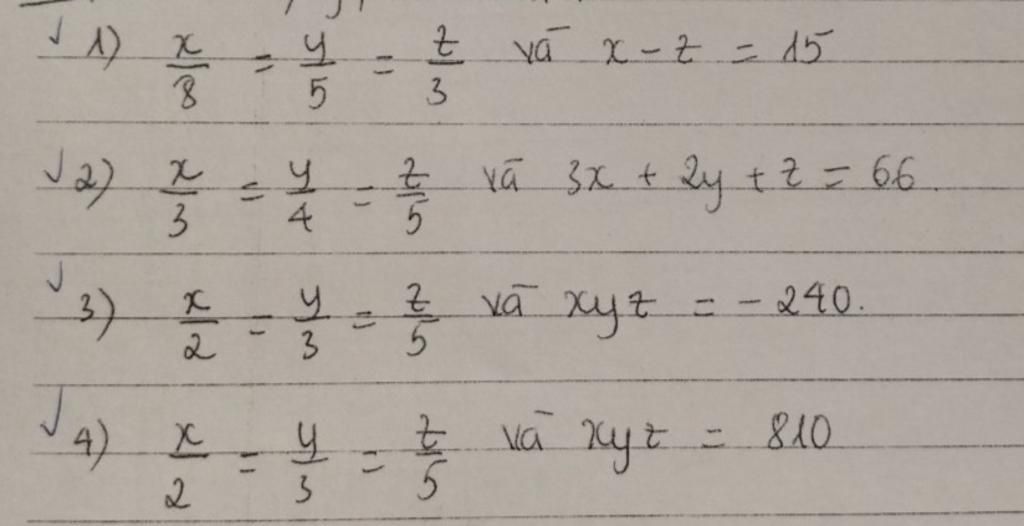 1) x/8 = y/5 = z/3 và x - z = 15
2) x/3 = y/4 = z/5 và 3x + 2y + z = 66.
3) x/2 = y/3 = z/5 và xyz = - 240.
4) x/2 = y/3 = z/5 và xyz = 810